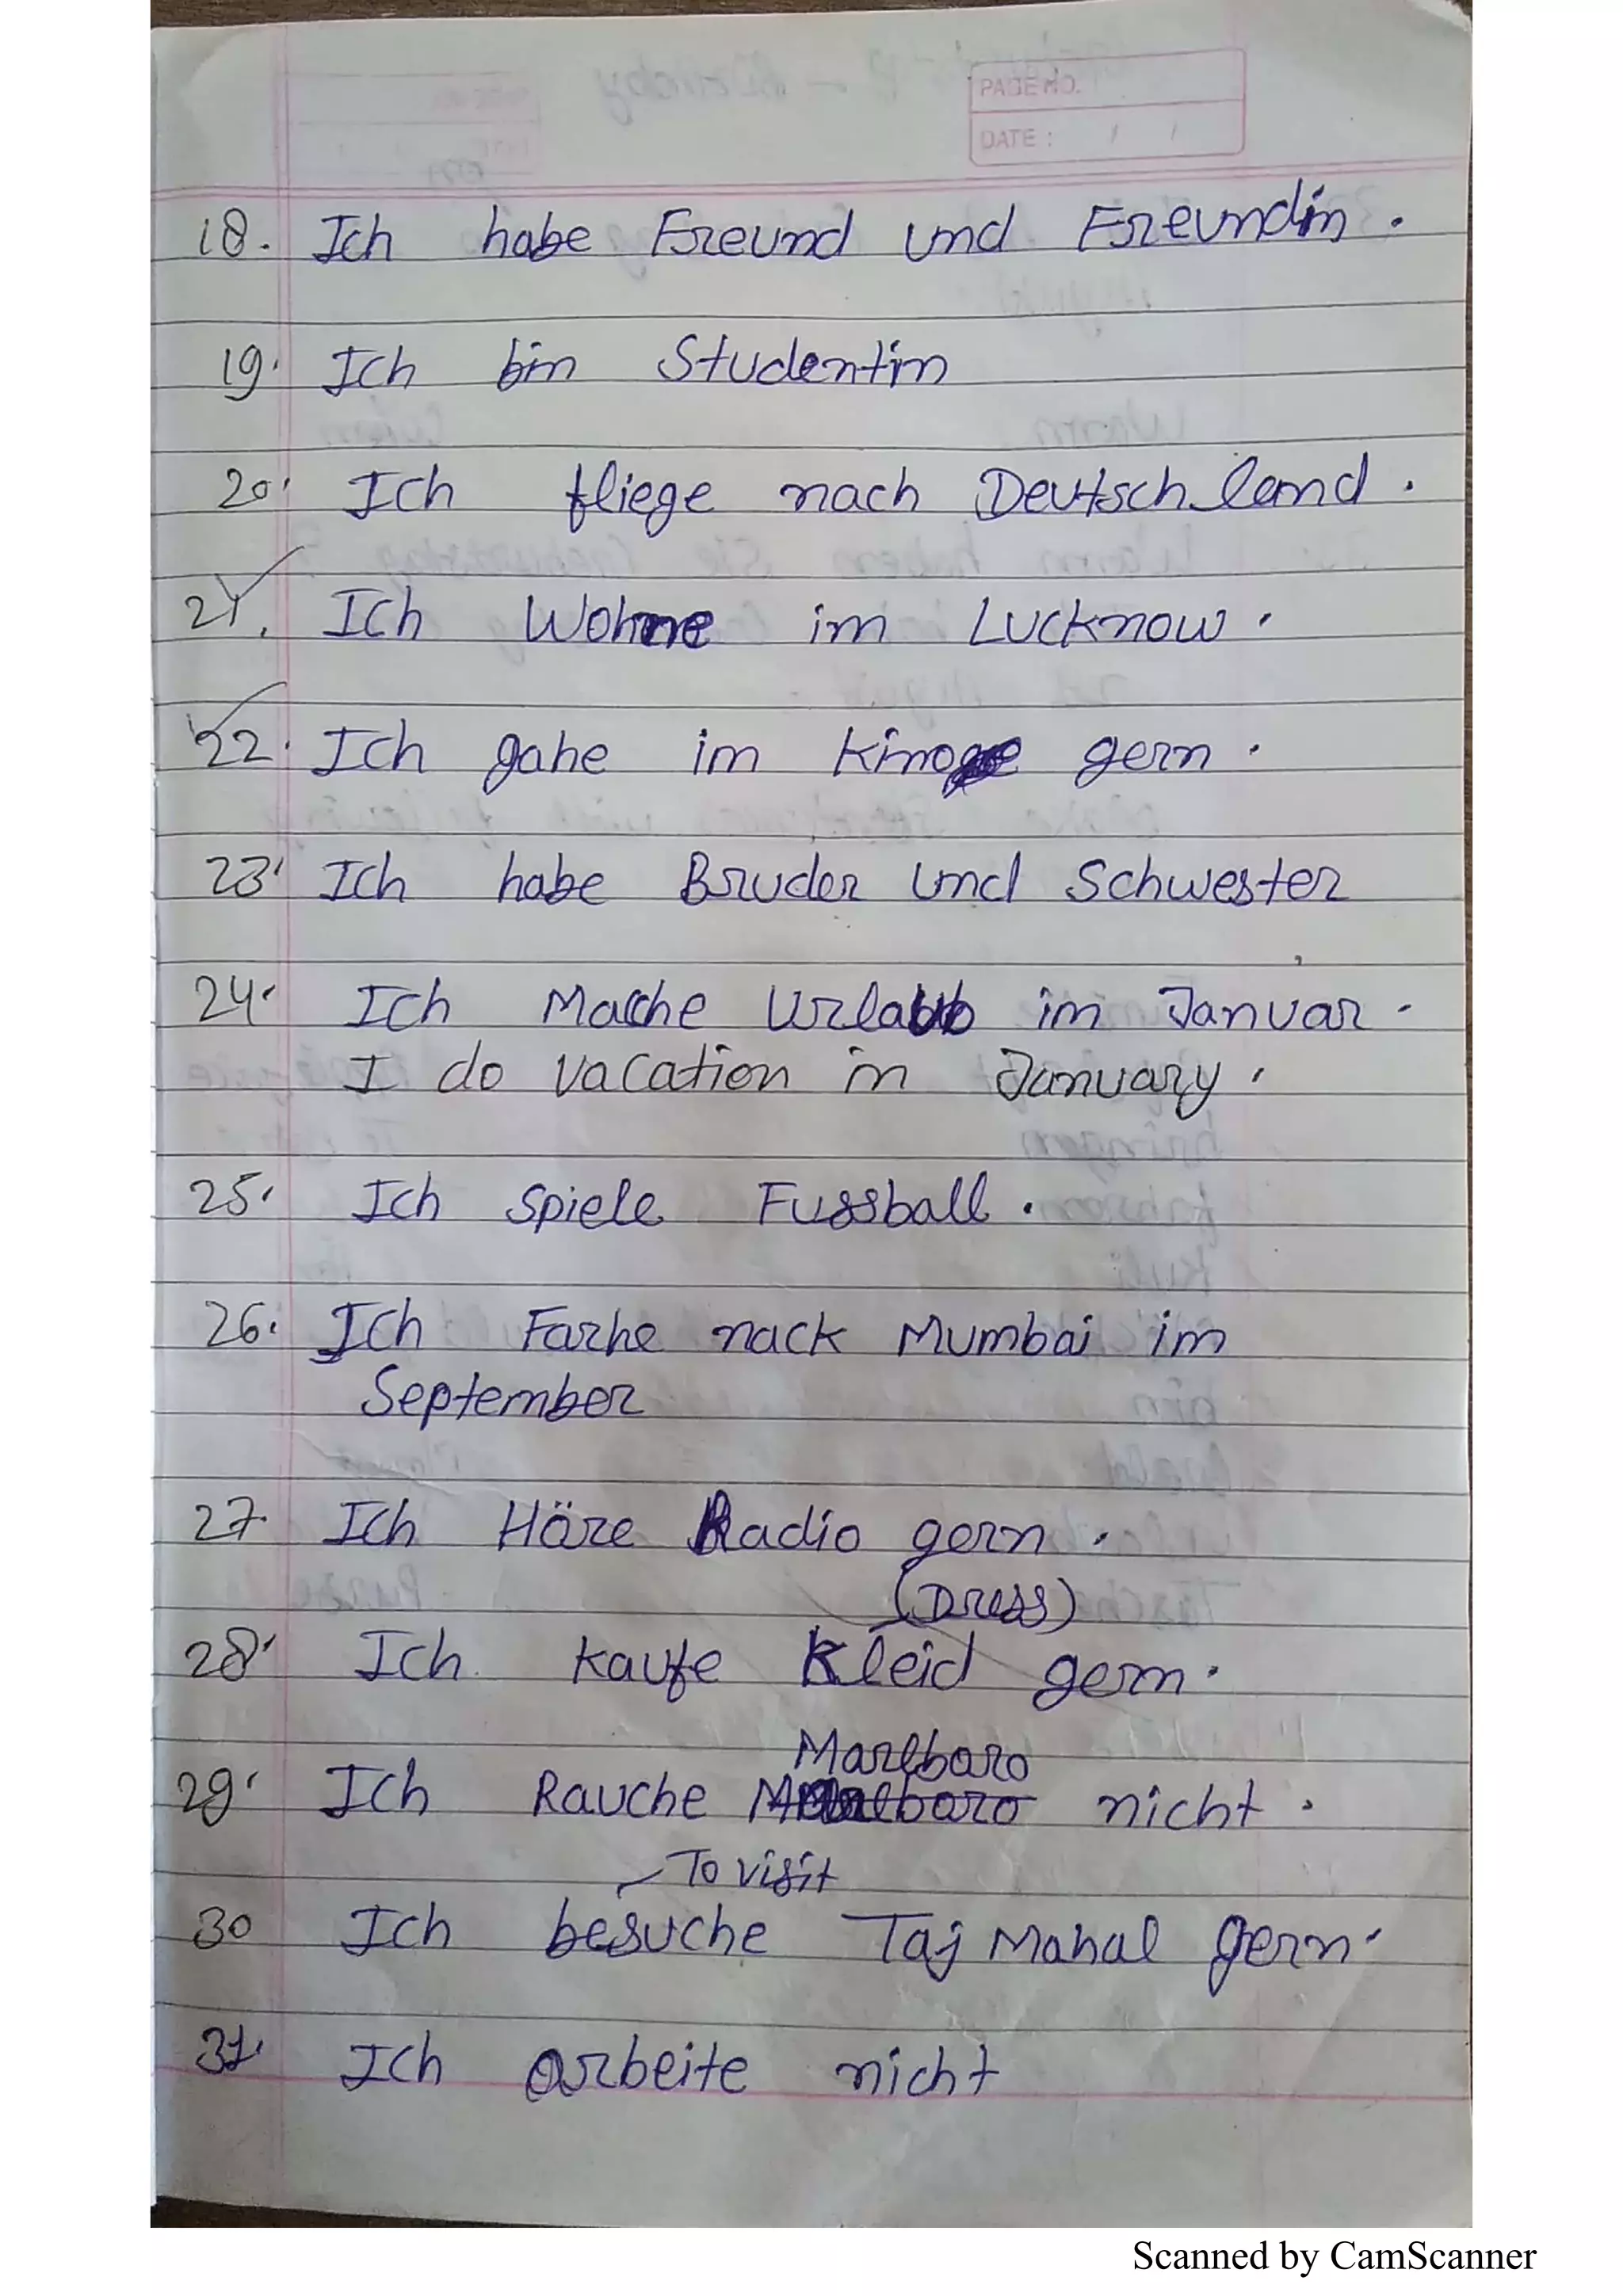 PAGE NO.
DATE : / /
18. Ich habe Freund und Freundin.
19. Ich bin Studentin
20. Ich fliege nach Deutschland.
21. Ich Wohne im Lucknow.
22. Ich gahe im Kino gern.
23. Ich habe Bruder und Schwester
24. Ich Mache Urlaub im Januar.
I do vacation in January.
25. Ich spiele Fussball.
26. Ich Farhe nack Mumbai im
September
27. Ich Häre Radio gern.
(Dress)
28. Ich kaufe Kleid gern.
Marlboro
29. Ich Rauche Marlboro nicht.
To visit
30 Ich besuche Taj Mahal gern.
31. Ich arbeite nicht
Scanned by CamScanner